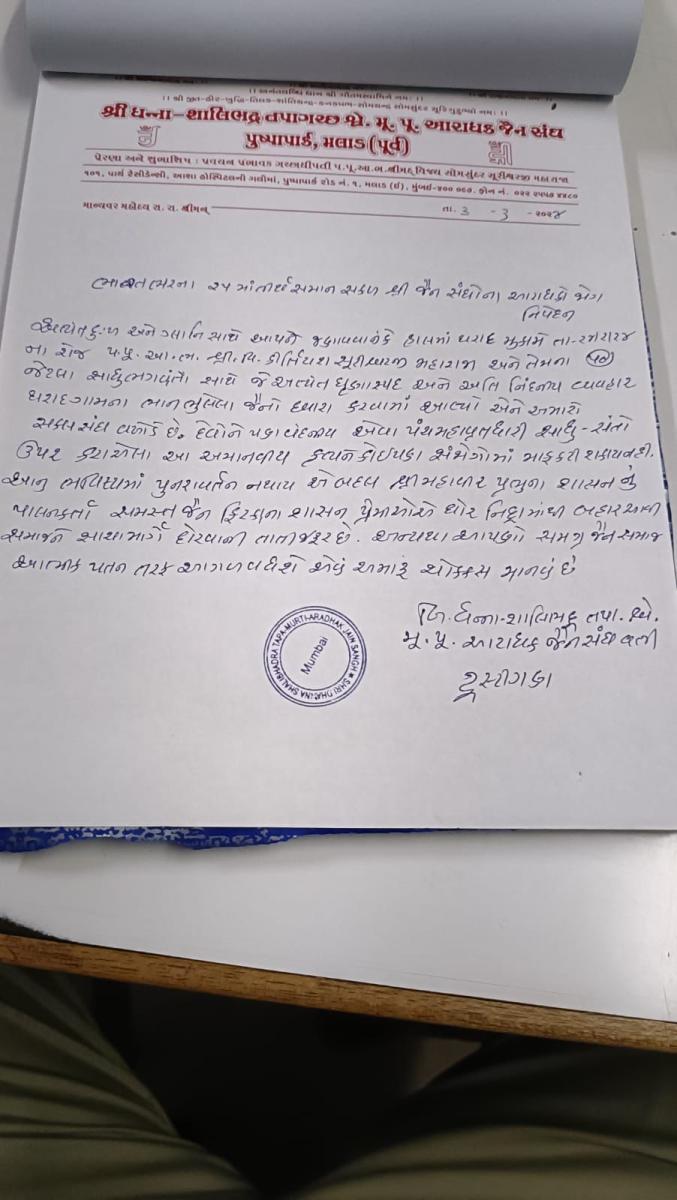 ।। અનંતલબ્ધિ ધાન શ્રી ગૌતમસ્વામિને નમઃ ।।
શ્રી ધન્ના-શાલિભદ્ર તપાગચ્છ શ્વે. મૂ. પૂ. આરાધક જૈન સંઘ
પુષ્પાપાર્ક, મલાડ (પૂર્વ)
પ્રેરણા અને શુભાશિષ : પ્રવચન પ્રભાવક ગચ્છાધીપતી પ.પૂ.આ.ભ.શ્રીમદ્ વિજય સોમસુંદર સૂરીશ્વરજી મહારાજા
૧૦૧, પાર્થ રેસીડેન્સી, આશા હોસ્પિટલની ગલીમાં, પુષ્પાપાર્ક રોડ નં. ૧, મલાડ (ઈ), મુંબઈ-૪૦૦ ૦૯૭. ફોન નં. ૦૨૨ ૨૫૫૭ ૪૪૮૦
માન્યવર મહોદય રા. રા. શ્રીમન્
તા. ૩ - ૩ - ૨૦૨૪
ભારતભરના ૨૫ માં તીર્થ સમાન સકળ શ્રી જૈન સંઘોના આરાધકો જોગ
નિવેદન
અત્યંત દુઃખ અને ગ્લાનિ સાથે આપને જણાવવાનું કે હાલમાં થરાદ મુકામે તા-
ના રોજ પ.પૂ. આ.ભ. શ્રી. વિ. કીર્તિયશ સૂરીશ્વરજી મહારાજ અને તેમના
જેટલા સાધુભગવંતો સાથે જે અત્યંત ઘૃણાસ્પદ અને અતિ નિંદનીય વ્યવહાર
થરાદગામના ભાન ભુલેલા જૈનો દ્વારા કરવામાં આવ્યો એને અમારો
સકલ સંઘ વખોડે છે. દેવોને પણ વંદનીય એવા પંચમહાવ્રતધારી સાધુ-સંતો
ઉપર કરાયેલા આ અમાનવીય કૃત્યને કોઈપણ સંજોગોમાં માફ કરી શકાય નહી.
આનુ ભવિષ્યમાં પુનરાવર્તન નથાય એ બદલ શ્રી મહાવીર પ્રભુના શાસન નું
પાલનકર્તા સમસ્ત જૈન ફિરકાના શાસન પ્રેમીઓએ ઘોર નિદ્રામાંથી બહાર આવી
સમાજને સાચા માર્ગે દોરવાની તાતી જરૂર છે. અન્યથા આપણો સમગ્ર જૈન સમાજ
આત્મીક પતન તરફ આગળ વધશે એવું અમારું ચોક્કસ માનવું છે
લિ. ધન્ના-શાલિભદ્ર તપા. શ્વે.
મૂ. પૂ. આરાધક જૈન સંઘ વતી
ટ્રસ્ટીગણ
SHRI DHANNA SHALIBHADRA TAPA-MURTI-ARADHAK JAIN SANGH
Mumbai